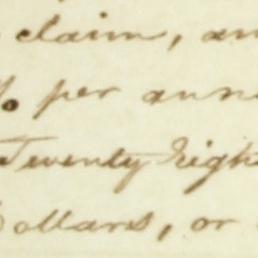 claim, an
% per ann
Twenty Eigh
Dollars, or